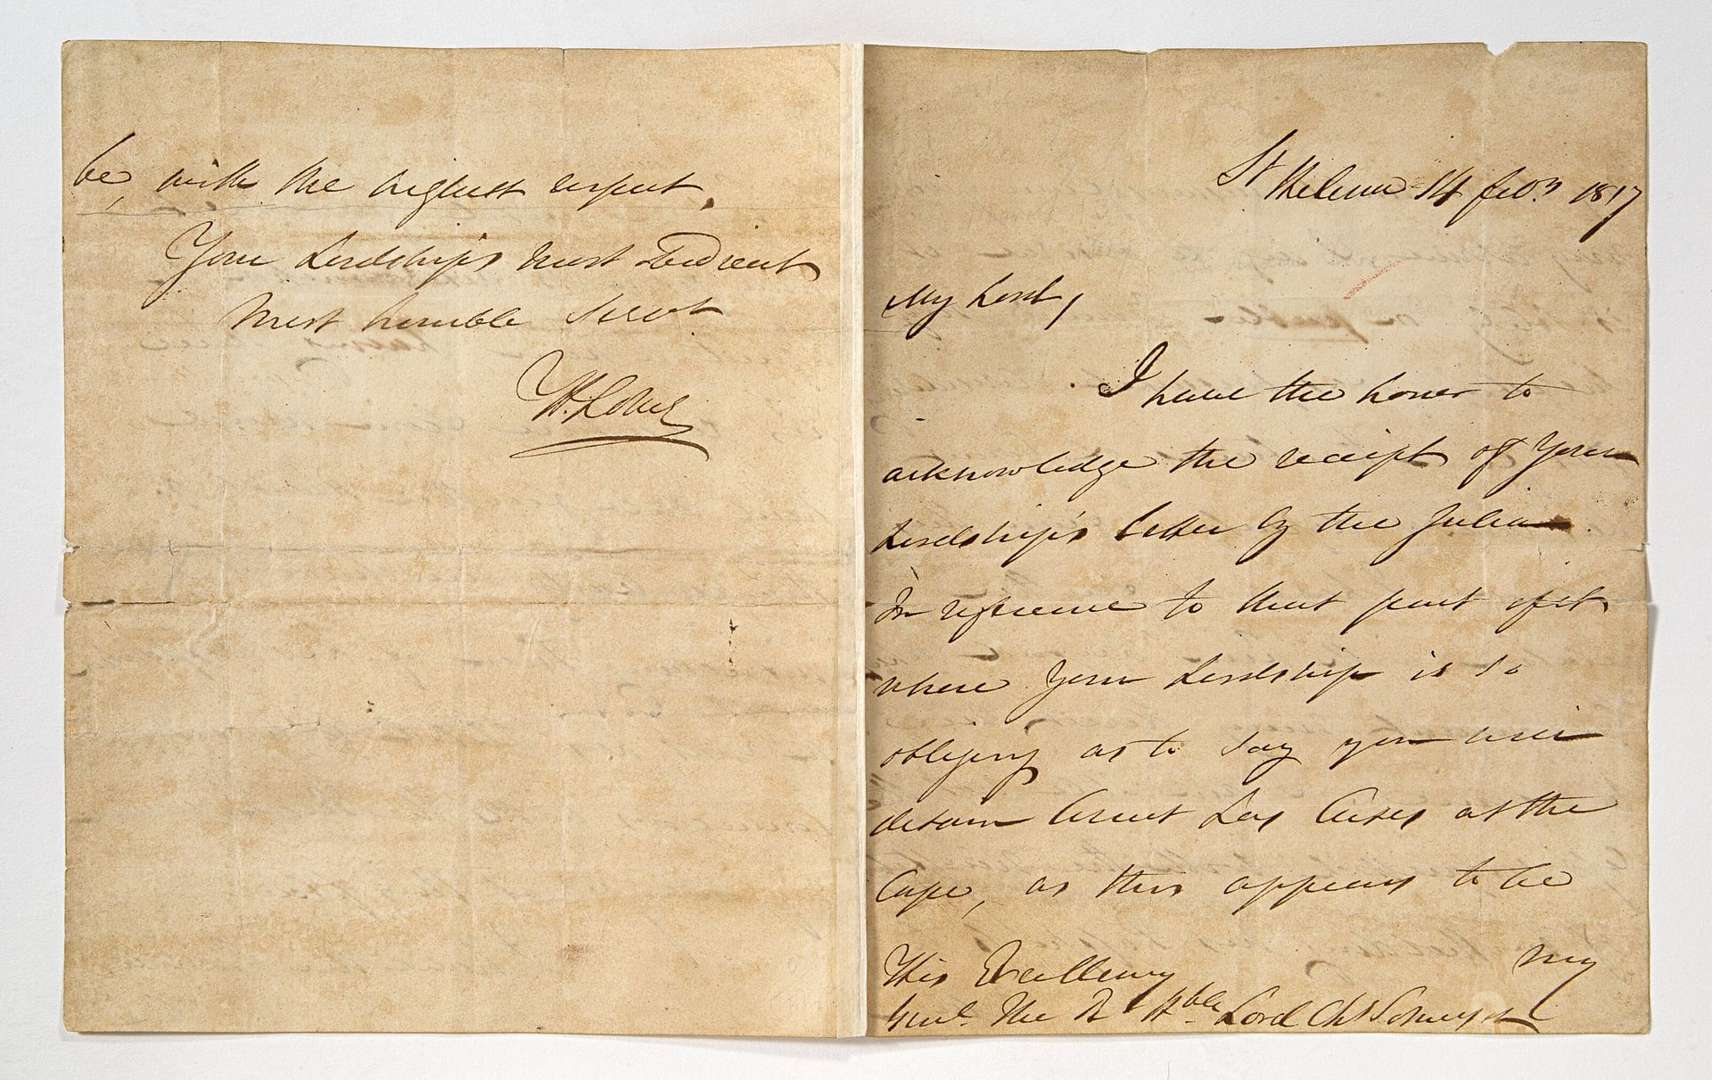 St Helena 14 Feby 1817
My Lord,
I have the honor to
acknowledge the receipt of Your
Lordship's letter by the Julia
In reference to that part of it
where Your Lordship is so
obliging as to say you will
detain Count Las Cases at the
Cape, as this appears to be
my
His Excellency
Genl. The Rt Hble Lord Chs Somerset
be, with the highest respect,
Your Lordship's most obedient
Most humble Servt
H. Lowe